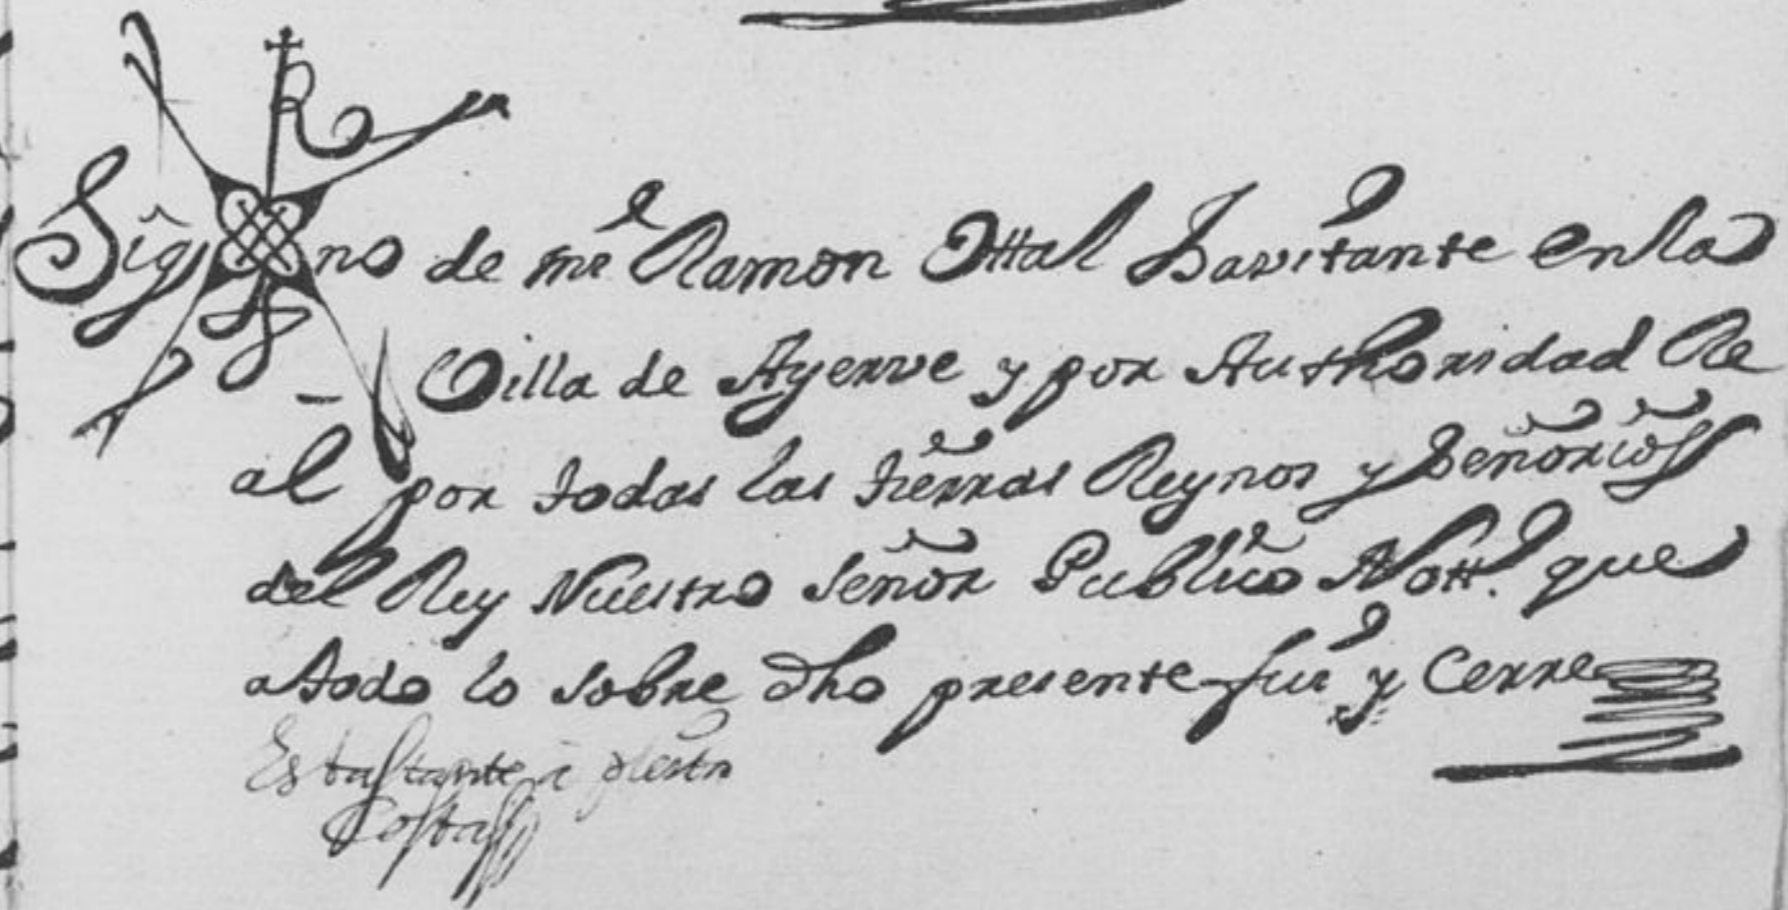 Signo de mi Ramon Ottal Havitante en la
Villa de Ayerve y por Authoridad Re
al por todas las tierras Reynos y Señorios
del Rey Nuestro Señor Publico Nott.º que
a todo lo sobre dho presente fui y Cerre